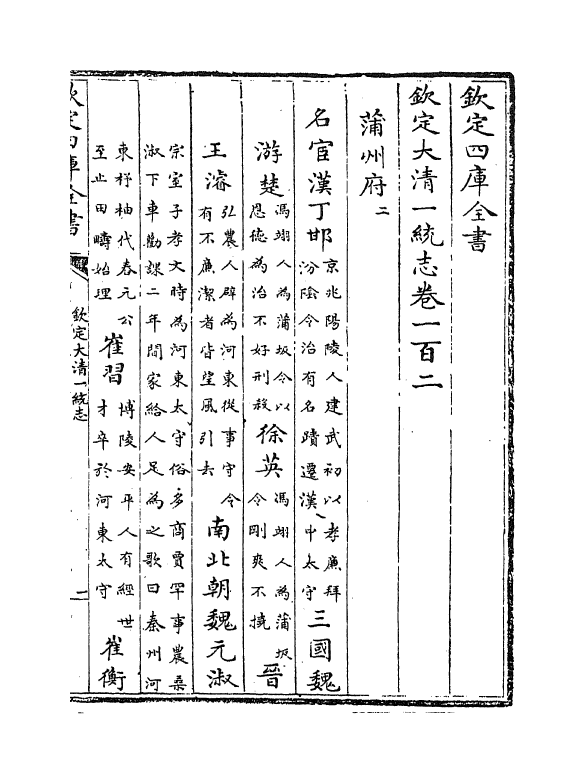 欽定四庫全書
欽定大清一統志卷一百二
蒲州府二
名宦漢丁邯京兆陽陵人建武初以孝廉拜汾陰令治有名蹟遷漢中太守三國魏
游楚馮翊人為蒲坂令以恩德為治不好刑殺徐英馮翊人為蒲坂令剛爽不撓晉
王濬弘農人辟為河東從事守令有不廉潔者皆望風引去南北朝魏元淑
宗室子孝文時為河東太守俗多商賈罕事農桑淑下車勸課二年間家給人足為之歌曰秦州河
東杼柚代春元公至止田疇始理崔習博陵安平人有經世才卒於河東太守崔衡
欽定四庫全書
欽定大清一統志
一